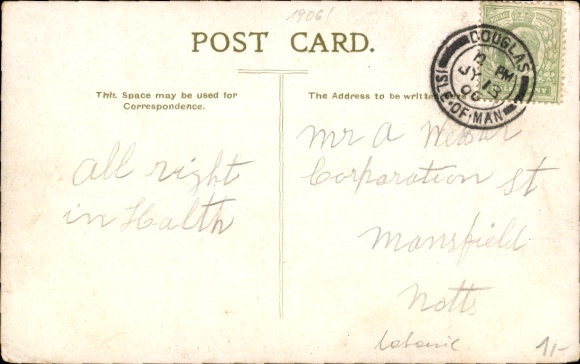 1906!
POST CARD.
This Space may be used for
Correspondence.
The Address to be written
DOUGLAS
12 PM
JY 13
06
ISLE OF MAN
All right
in Halth
Mr A Webster
Corporation St
Mansfield
Notts
1-